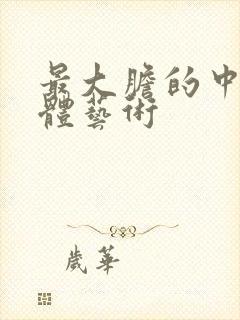 最大膽的中
體藝術
歲華